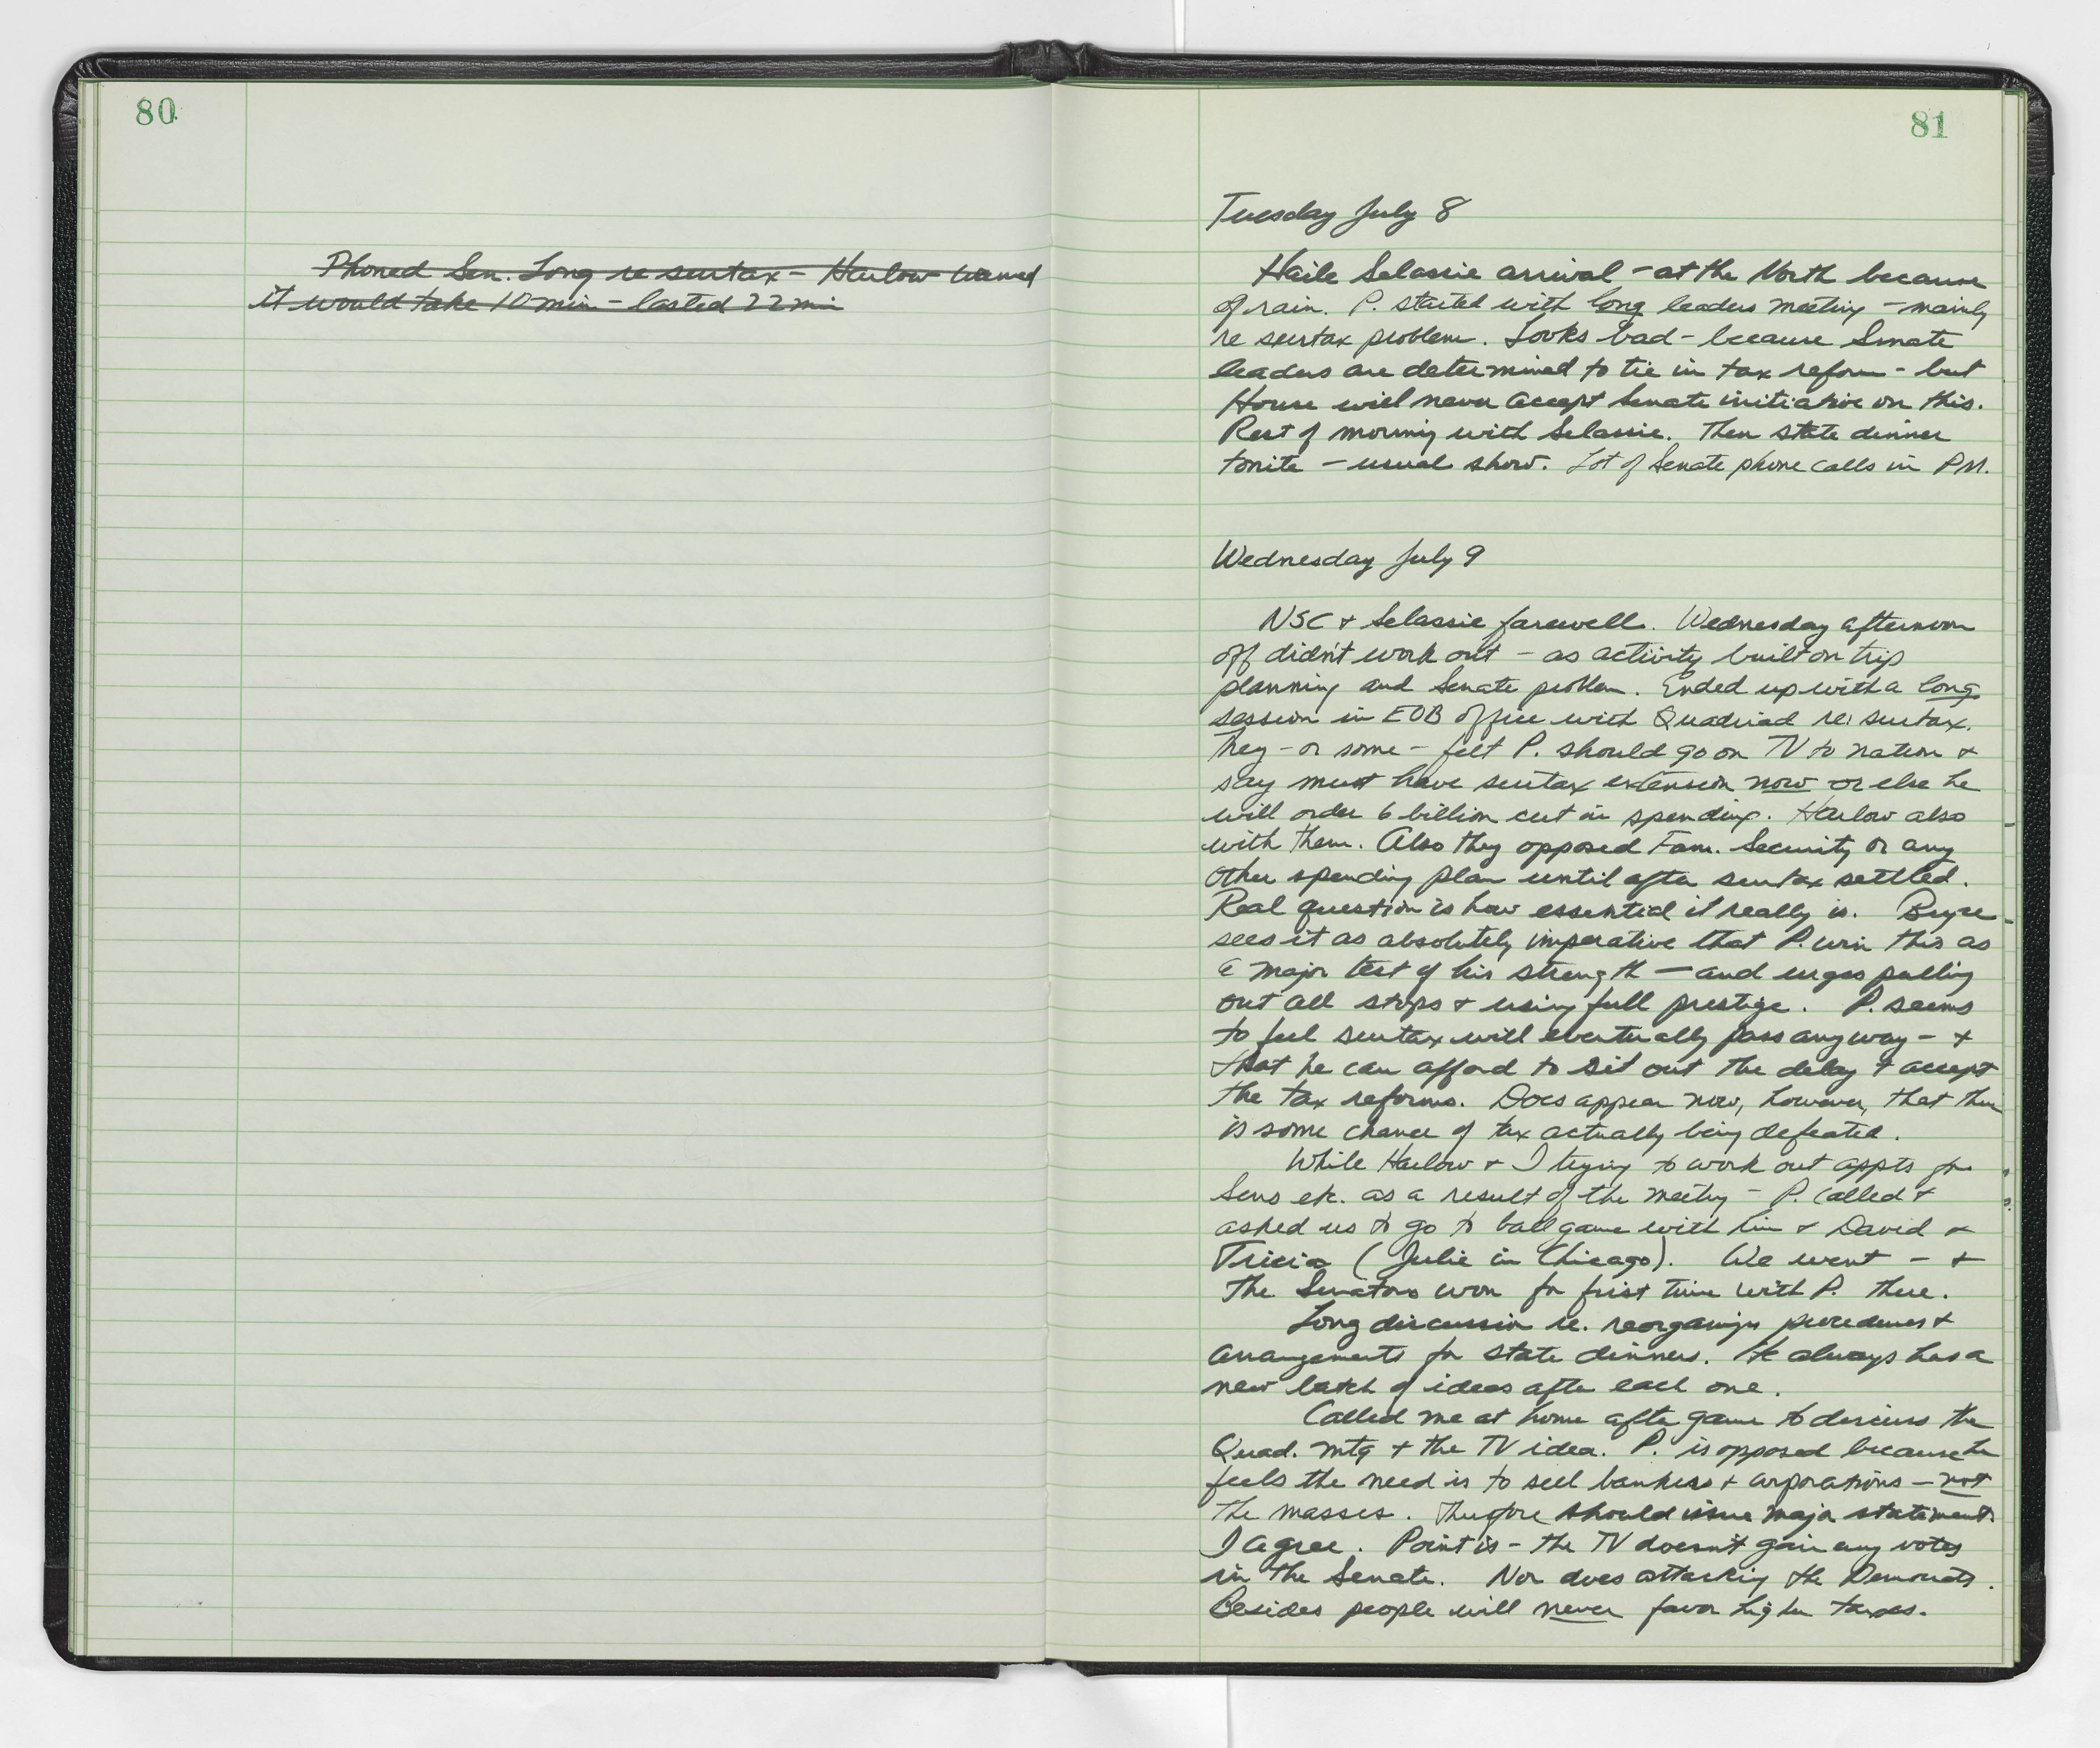 80
Phoned Sen. Long re surtax – Harlow warned
it would take 10 min – lasted 22 min
81
Tuesday July 8
Haile Selassie arrival – at the North because
of rain. P. started with long leaders meeting – mainly
re surtax problem. Looks bad – because Senate
leaders are determined to tie in tax reform – but
House will never accept Senate initiative on this.
Rest of morning with Selassie. Then state dinner
tonite – usual show. Lot of Senate phone calls in PM.
Wednesday July 9
NSC + Selassie farewell. Wednesday afternoon
off didn't work out – as activity built on trip
planning and Senate problem. Ended up with a long
session in EOB office with Quadriad re: surtax.
They – or some – felt P. should go on TV to nation +
say must have surtax extension now or else he
will order 6 billion cut in spending. Harlow also
with them. Also they opposed Fam. Security or any
other spending plan until after surtax settled.
Real question is how essential it really is. Bryce
sees it as absolutely imperative that P. win this as
a major test of his strength – and urges pulling
out all stops + using full prestige. P. seems
to feel surtax will eventually pass anyway – +
that he can afford to sit out the delay + accept
the tax reforms. Does appear now, however, that there
is some chance of tax actually being defeated.
While Harlow + I trying to work out appts for
Sens etc. as a result of the meeting – P. called +
asked us to go to ball game with him + David +
Tricia (Julie in Chicago). We went – +
the Senators won for first time with P. there.
Long discussion re. reorganizing procedures +
arrangements for state dinners. He always has a
new batch of ideas after each one.
Called me at home after game to discuss the
Quad. mtg + the TV idea. P. is opposed because he
feels the need is to sell bankers + corporations – not
the masses. Therefore should issue major statement.
I agree. Point is – the TV doesn't gain any votes
in the Senate. Nor does attacking the Democrats.
Besides people will never favor higher taxes.